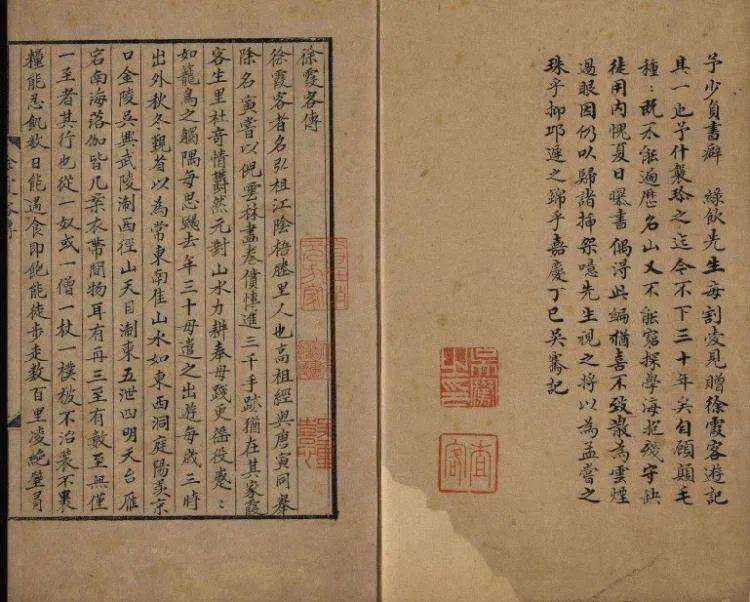 予少負書癖 綠飲先生每割愛見贈徐霞客遊記
其一也予什襲珍之迄今不下三十年矣自顧顛毛
種:既不能遍歷名山又不能窮探學海抱殘守缺
徒用内愧夏日曝書偶得此編猶喜不致散為雲煙
過眼因仍以歸諸插架噫先生視之將以為孟嘗之
珠乎抑邱遲之錦乎嘉慶丁巳吳騫記
徐霞客傳
徐霞客者名弘祖江陰梧塍里人也高祖經與唐寅同舉
除名寅嘗以倪雲林畫卷償博進三千手跡猶在其家霞
客生里社奇情鬱然元對山水力耕奉母踐更徭役蹙:
如籠鳥之觸隅每思颺去年三十母遣之出遊每歲三時
出外秋冬覲省以為常東南佳山水如東西洞庭陽羨京
口金陵吳興武陵淛西徑山天目淛東五泄四明天台雁
宕南海落伽皆几案衣帶間物耳有再三至有數至無僅
一至者其行也從一奴或一僧一杖一襆被不治裝不裹
糧能忍飢數日能遇食即飽能徒步走數百里凌絕壁冒